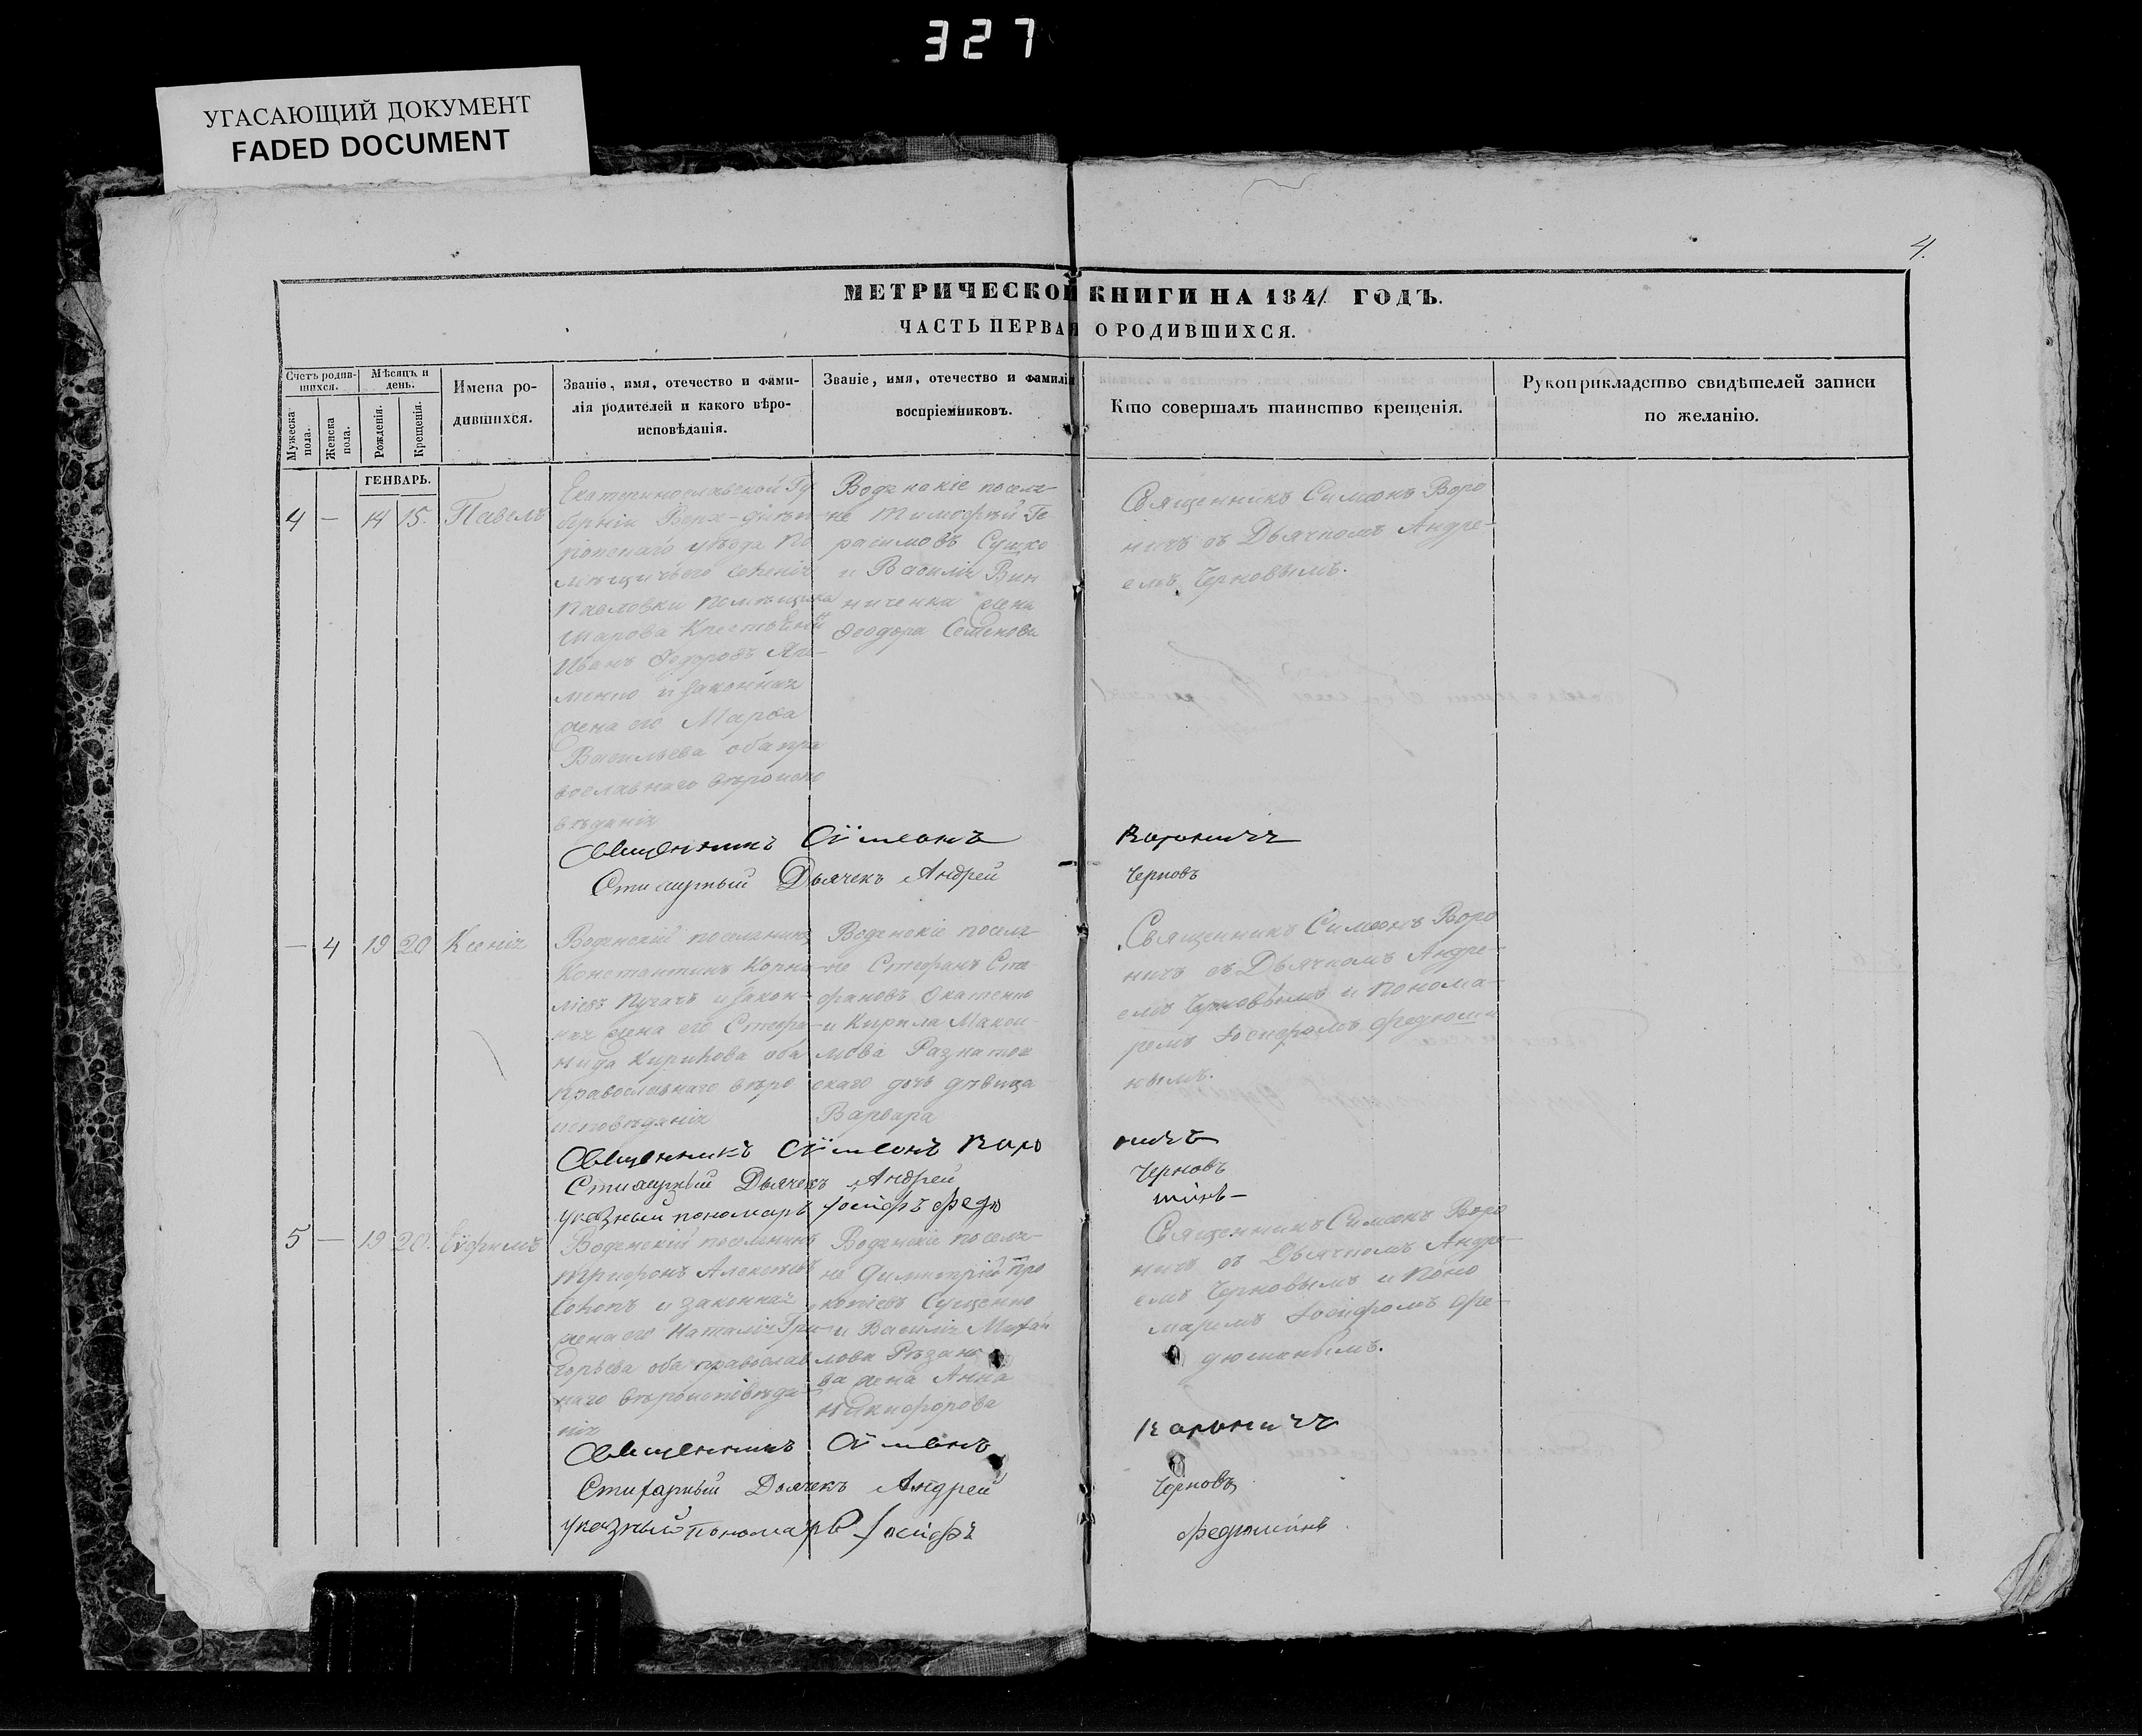 327
УГАСАЮЩИЙ ДОКУМЕНТ
FADED DOCUMENT
4.
МЕТРИЧЕСКОЙ КНИГИ НА 1841 ГОДЪ.
ЧАСТЬ ПЕРВАЯ О РОДИВШИХСЯ.
Счетъ родив-
шихся.
Мужеска
пола.
Женска
пола.
Мѣсяцъ и
день.
Рожденія.
Крещенія.
Имена ро-
дившихся.
Званіе, имя, отечество и фами-
лія родителей и какого вѣро-
исповѣданія.
Званіе, имя, отечество и фамилія
воспріемниковъ.
Кто совершалъ таинство крещенія.
Рукоприкладство свидѣтелей записи
по желанію.
ГЕНВАРЬ.
4 — 14 15. Павелъ
Екатеринославской Гу
берніи Верхо-днѣп
ровскаго уѣзда По
мѣщичьего
Павловки Помѣщика
Шарова
Иванъ Федоровъ
и законная
жена его Марѳа
Васильева оба пра
вославнаго вѣроиспо
вѣданія
посѣля-
не Тимофѣй Ге
расимовъ Сушко
и Василія Вин
ниченка жена
Феодора Семенова
Священникъ Симеонъ Воро
ничъ съ Дьячкомъ Андре-
емъ Черновымъ.
Священникъ Сѵмеонъ Вороничъ
Стихарный Дьячекъ Андрей Черновъ
— 4 19 20 Ксенія
Воденскій поселянинъ
Константинъ Корни-
ліевъ Пугачъ и закон-
ная жена его Стефа-
нида Кирилова оба
православнаго вѣро
исповѣданія
Воденскіе поселя-
не Стефанъ Сте-
фановъ
и Кирила Макси-
мова
скаго дочь дѣвица
Варвара
Священникъ Симеонъ Воро
ничъ съ Дьячкомъ Андре-
емъ Черновымъ и Понома-
ремъ Іосифомъ Федюши
нымъ.
Священникъ Сѵмеонъ Вороничъ
Стихарный Дьячекъ Андрей Черновъ
Указный пономарь Іосифъ Федюшинъ
5 — 19 20. Евфимъ
Воденскій поселянинъ
Трифонъ Алексѣевъ
и законная
жена его Наталія Гри-
горьева оба православ
наго вѣроисповѣда-
нія
Воденскіе поселя-
не Димитрій Про
копіевъ Сущенко
и Василія Михаи
лова
жена Анна
Никифорова
Священникъ Симеонъ Воро
ничъ съ Дьячкомъ Андре-
емъ Черновымъ и Поно
маремъ Іосифомъ Фе-
дюшинымъ.
Священникъ Сѵмеонъ Вороничъ
Стихарный Дьячекъ Андрей Черновъ
Указный Пономарь Іосифъ Федюшинъ